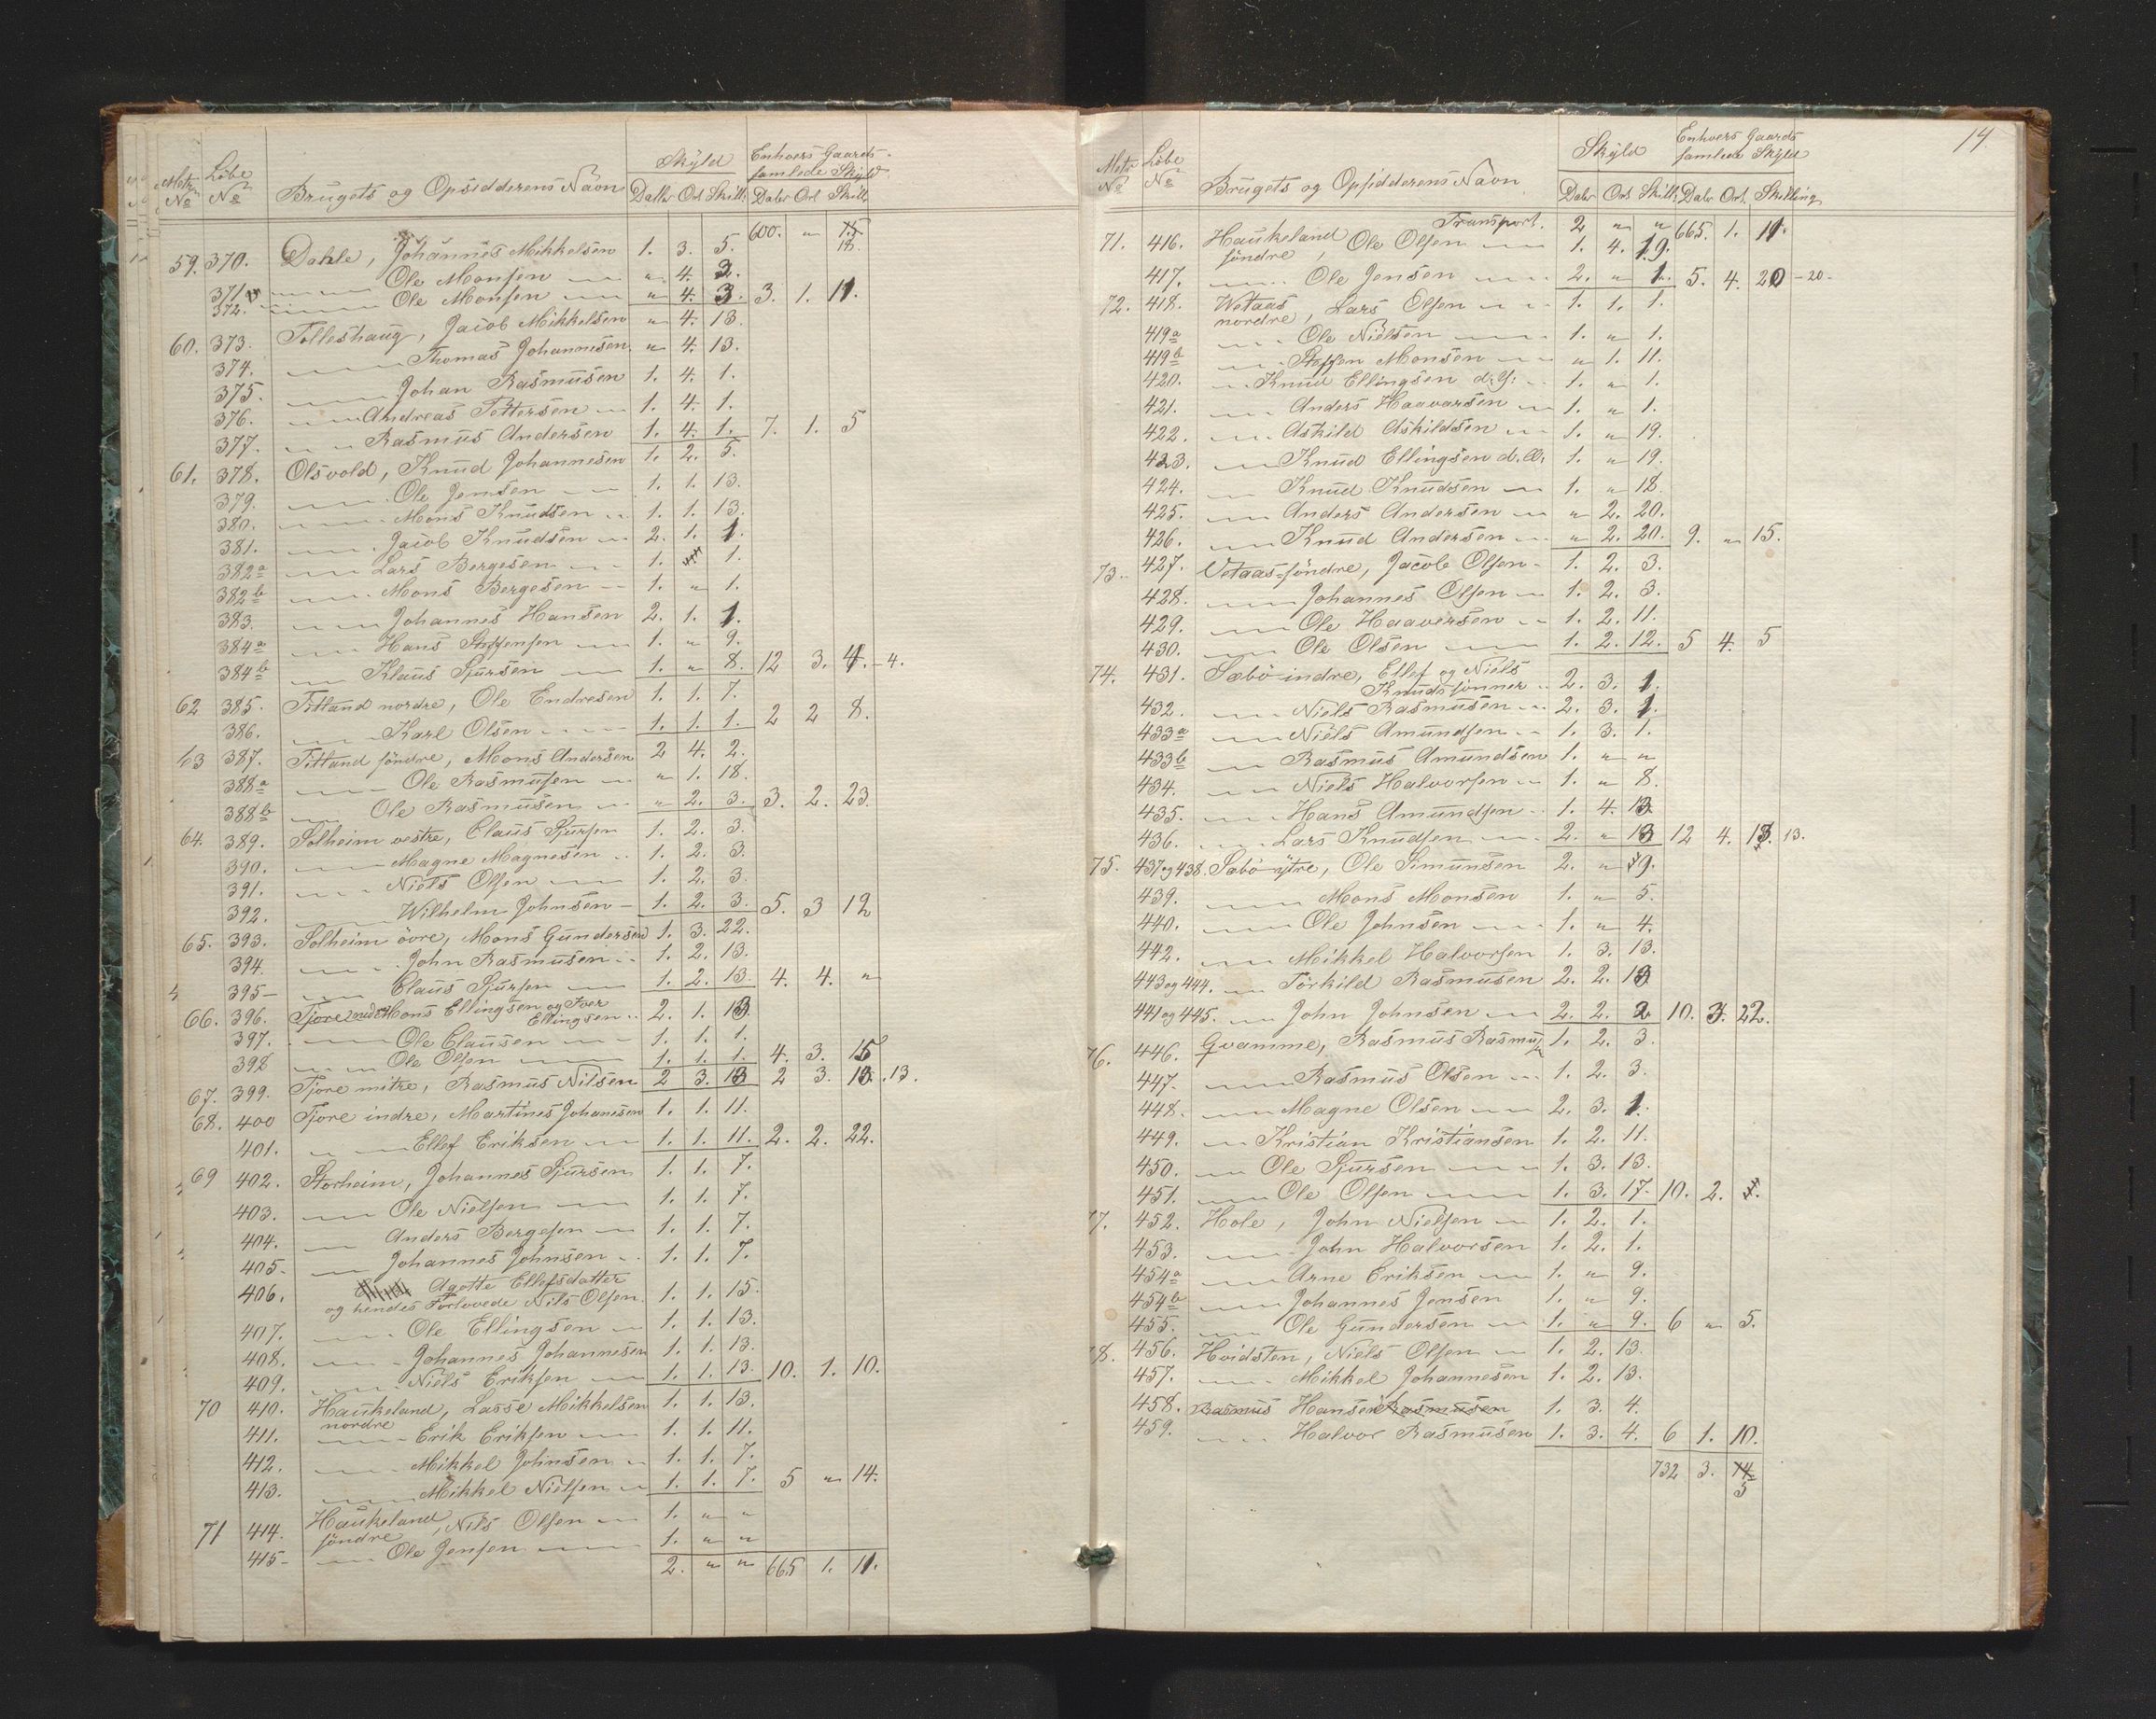 Matr. № Löbe № Brugets og Opsidderens Navn Skyld Enhvers Gaards samlede Skyld
Daler Ort Skill. Daler Ort Skill.
600. " 18.
59. 370. Dahle, Johannes Mikkelsen 1. 3. 5.
371 Ole Monsen " 4. 3.
372. Ole Monsen " 4. 3. 3. 1. 11.
60. 373. Tolleshaug, Jacob Mikkelsen " 4. 13.
374. Thomas Johannesen " 4. 13.
375. Johan Rasmusen 1. 4. 1.
376. Andreas Pettersen 1. 4. 1.
377. Rasmus Andersen 1. 4. 1. 7. 1. 5
61. 378. Olsvold, Knud Johannesen 1. 2. 5.
379. Ole Jensen 1. 1. 13.
380. Mons Knudsen 1. 1. 13.
381. Jacob Knudsen 2. 1. 1.
382a Lars Bergesen 1. " 1.
382b Mons Bergesen 1. " 1.
383. Johannes Hansen 2. 1. 1.
384a Hans Steffensen 1. " 9.
384b Klaus Sjursen 1. " 8. 12 3. 4. – 4.
62 385. Titland nordre, Ole Endresen 1. 1. 7.
386. Karl Olsen 1. 1. 1. 2 2 8.
63 387. Titland söndre, Mons Andersen 2 4. 2.
388a Ole Rasmusen " 1. 18.
388b Ole Rasmusen " 2. 3. 3. 2. 23.
64. 389. Solheim vestre, Claus Sjursen 1. 2. 3.
390. Magne Magnesen 1. 2. 3.
391. Niels Olsen 1. 2. 3.
392. Wilhelm Johnsen 1. 2. 3. 5. 3 12
65. 393. Solheim övre, Mons Gundersen 1. 3. 22.
394. John Rasmusen 1. 2. 13.
395 Claus Sjursen 1. 2. 13 4. 4. "
66. 396. Tjore Mons Ellingsen og Iver
Ellingsen 2. 1. 13.
397. Ole Clausen 1. 1. 1.
398 Ole Olsen 1. 1. 1. 4. 3. 15
67. 399. Tjore mitre, Rasmus Nilsen 2 3. 13 2 3. 13. 13.
68. 400 Tjore indre, Martines Johanesen 1. 1. 11.
401. Ellef Eriksen 1. 1. 11. 2. 2. 22.
69 402. Storheim, Johannes Sjursen 1. 1. 7.
403. Ole Nielsen 1. 1. 7.
404. Anders Bergesen 1. 1. 7.
405. Johannes Johnsen 1. 1. 7.
406. Agotte Ellefsdatter
og hendes Forlovede Nils Olsen. 1. 1. 15.
407. Ole Ellingsen 1. 1. 13.
408. Johannes Johannesen 1. 1. 13.
409. Niels Eriksen 1. 1. 13. 10. 1. 10.
70 410. Haukeland, Lasse Mikkelsen 1. 1. 13.
nordre
411. Erik Eriksen 1. 1. 11.
412. Mikkel Johnsen 1. 1. 7.
413. Mikkel Nielsen 1. 1. 7. 5 " 14.
71 414. Haukeland söndre, Nils Olsen 1. " "
415 Ole Jensen 1. " "
2. " " 665 1. 11.
14
Matr. № Löbe № Brugets og Opsidderens Navn Skyld Enhvers Gaards samlede Skyld
Daler Ort Skill. Daler Ort. Skilling
Transport. 2 " " 665. 1. 11.
71. 416. Haukeland söndre, Ole Olsen 1. 4. 19.
417. Ole Jensen 2. " 1. 5. 4. 20 – 20 –
72. 418. Wetaas nordre, Lars Olsen 1. 1. 1.
419a Ole Nielsen 1. " 1.
419b Steffen Monsen " 1. 11.
420. Knud Ellingsen d.y. 1. " 1.
421. Anders Haavarsen 1. " 1.
422. Askild Askildsen 1. " 19.
423. Knud Ellingsen d.æ. 1. " 19.
424. Knud Knudsen 1. " 18.
425. Anders Andersen " 2. 20.
426. Knud Andersen " 2. 20. 9. " 15.
73. 427. Vetaas söndre, Jacob Olsen 1. 2. 3.
428. Johannes Olsen 1. 2. 3.
429. Ole Haaversen 1. 2. 11.
430. Ole Olsen 1. 2. 12. 5 4. 5
74. 431. Sæbö indre, Ellef og Niels
Knudssönner 2. 3. 1.
432. Niels Rasmusen 2. 3. 1.
433a Niels Amundsen 1. 3. 1.
433b Rasmus Amundsen 1. " "
434. Niels Halvorsen 1. " 8.
435. Hans Amundsen 1. 4. 13.
436. Lars Knudsen 2. " 13 12 4. 13. 13.
75. 437 og 438. Sæbö ytre, Ole Simunsen 2. " 9.
439. Mons Monsen 1. " 5.
440. Ole Johnsen 1. " 4.
442. Mikkel Halvorsen 1. 3. 13.
443 og 444. Torkild Rasmusen 2. 2. 13
441 og 445. John Johnsen 2. 2. 2 10. 3. 22.
76. 446. Qvamme, Rasmus Rasmus 1. 2. 3.
447. Rasmus Olsen 1. 2. 3.
448. Magne Olsen 2. 3. 1.
449. Kristian Kristiansen 1. 2. 11.
450. Ole Sjursen 1. 3. 13.
451. Ole Olsen 1. 3. 17. 10. 2.
77. 452. Hole, John Nielsen 1. 2. 1.
453. John Halvorsen 1. 2. 1.
454a Arne Eriksen 1. " 9.
454b Johannes Jensen 1. " 9.
455. Ole Gundersen 1. " 9. 6 " 5.
78. 456. Hvidsten, Niels Olsen 1. 2. 13.
457. Mikkel Johannesen 1. 2. 13.
458. Rasmus Hansen Rasmusen 1. 3. 4.
459. Halvor Rasmusen 1. 3. 4. 6 1. 10.
732 3. 14
5